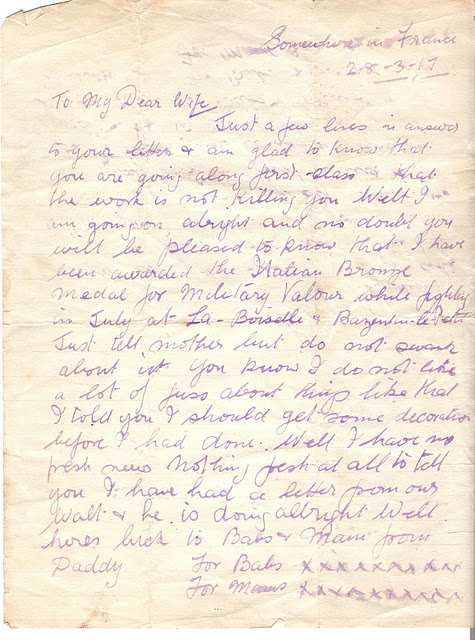 Somewhere in France
28-3-17
To My Dear Wife
Just a few lines in answer
to your letter & am glad to know that
you are going along first-class & that
the work is not killing you Well I
am going on alright and no doubt you
will be pleased to know that I have
been awarded the Italian Bronze
Medal for Military Valour while fighting
in July at La-Boiselle & Bazentin-le-Petit
Just tell mother but do not swank
about it. You know I do not like
a lot of fuss about things like that
I told you I should get some decoration
before I had done. Well I have no
fresh news Nothing fresh at all to tell
you I have had a letter from our
Walt & he is doing alright Well
heres luck to Babs & Mam from
Daddy For Babs xxxxxxxxxx
For Mams xxxxxxxxxx